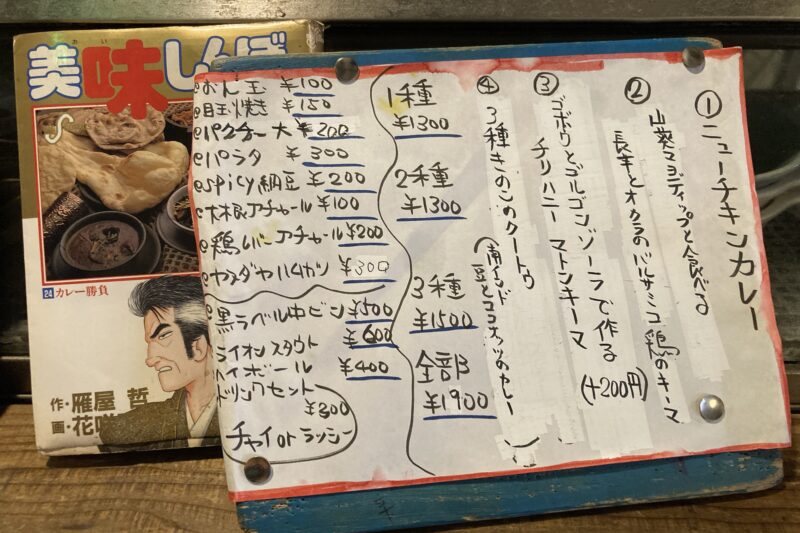 美味しんぼ
おい
24 カレー勝負
作・雁屋 哲
画・花咲
①ニューチキンカレー
②山葵マヨディップと食べる
長芋とオクラのバルサミコ鶏のキーマ
③ゴボウとゴルゴンゾーラで作る
チリハニーマトンキーマ
(+200円)
④3種きのこのクートゥ
(南インド
豆とココナッツのカレー)
1種
¥1300
2種
¥1300
3種
¥1500
全部
¥1900
おん玉 ¥100
目玉焼き ¥150
パクチー大 ¥200
パラタ ¥300
spicy納豆 ¥200
大根アチャール ¥100
鶏レバーアチャール ¥200
¥300
黒ラベル中ビン ¥500
ライオンスタウト ¥600
ハイボール ¥400
ドリンクセット
¥300
チャイ or ラッシー